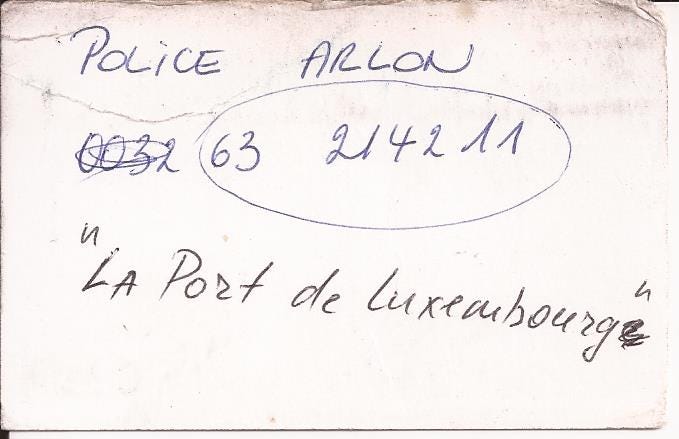 POLICE ARLON
0032 63 214211
"LA Port de Luxembourg"